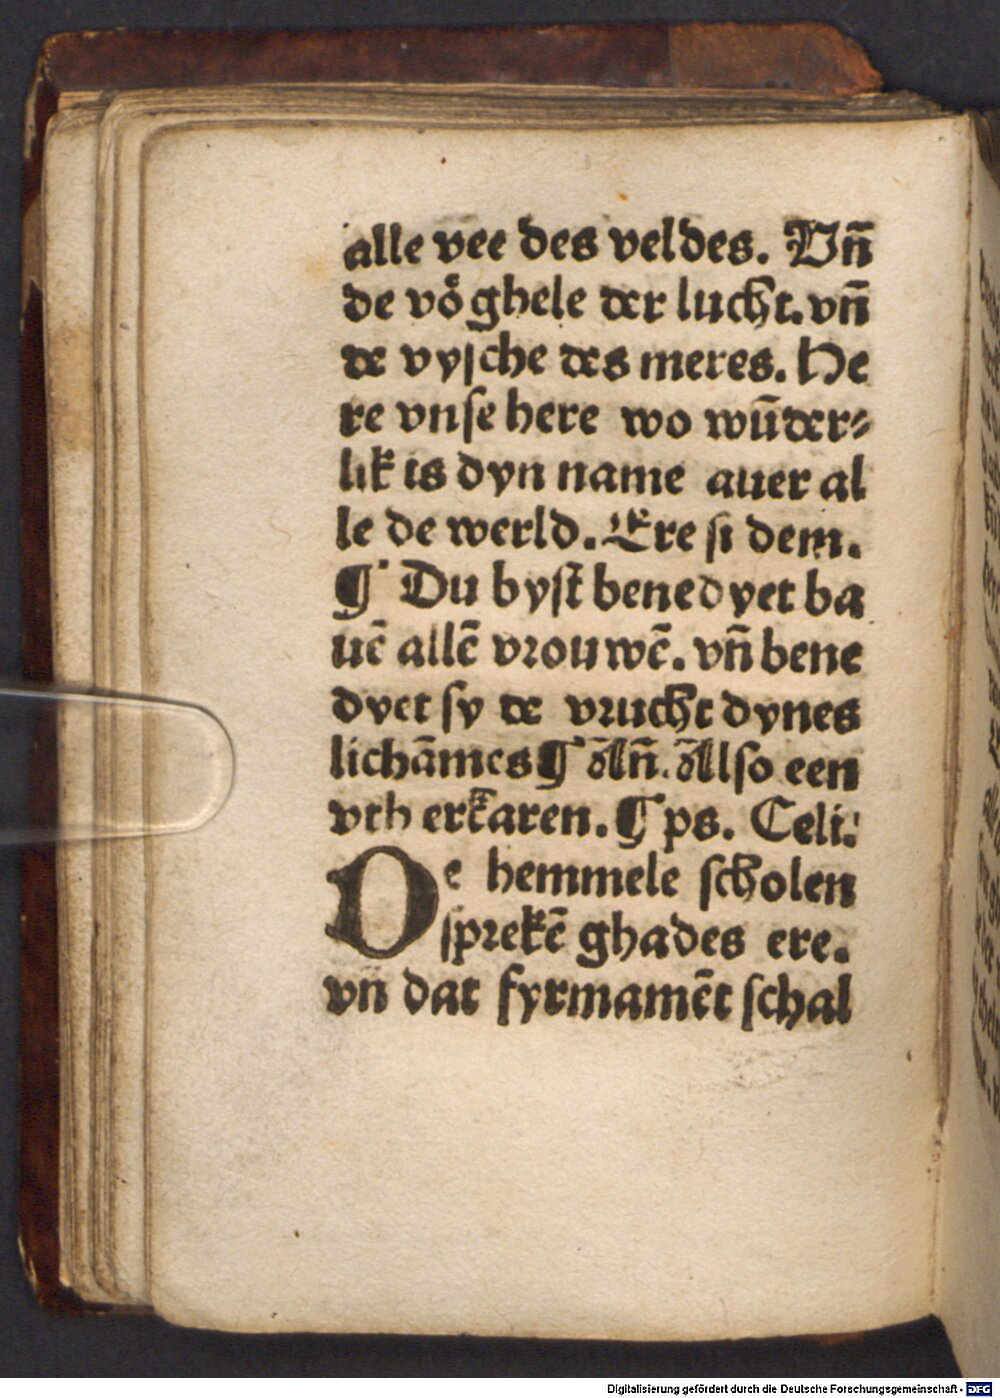 alle vee des veldes. Vn̄
de vögħele der lucht. vn̄
de vyſche des meres. He
re vnſe here wo wūder⸗
lik is dyn name auer al
le de werld. Ere ſi dem.
¶ Du byſt benedyet ba
uē allē vrouwē. vn̄ bene
dyet ſy de vrucht dynes
lichāmes ¶ An̄. Alſo een
vth erkaren. ¶ ps. Celi.
De hemmele ſcholen
ſprekē ghades ere.
vn̄ dat fyrmamēt ſchal
Digitalisierung gefördert durch die Deutsche Forschungsgemeinschaft - DFG